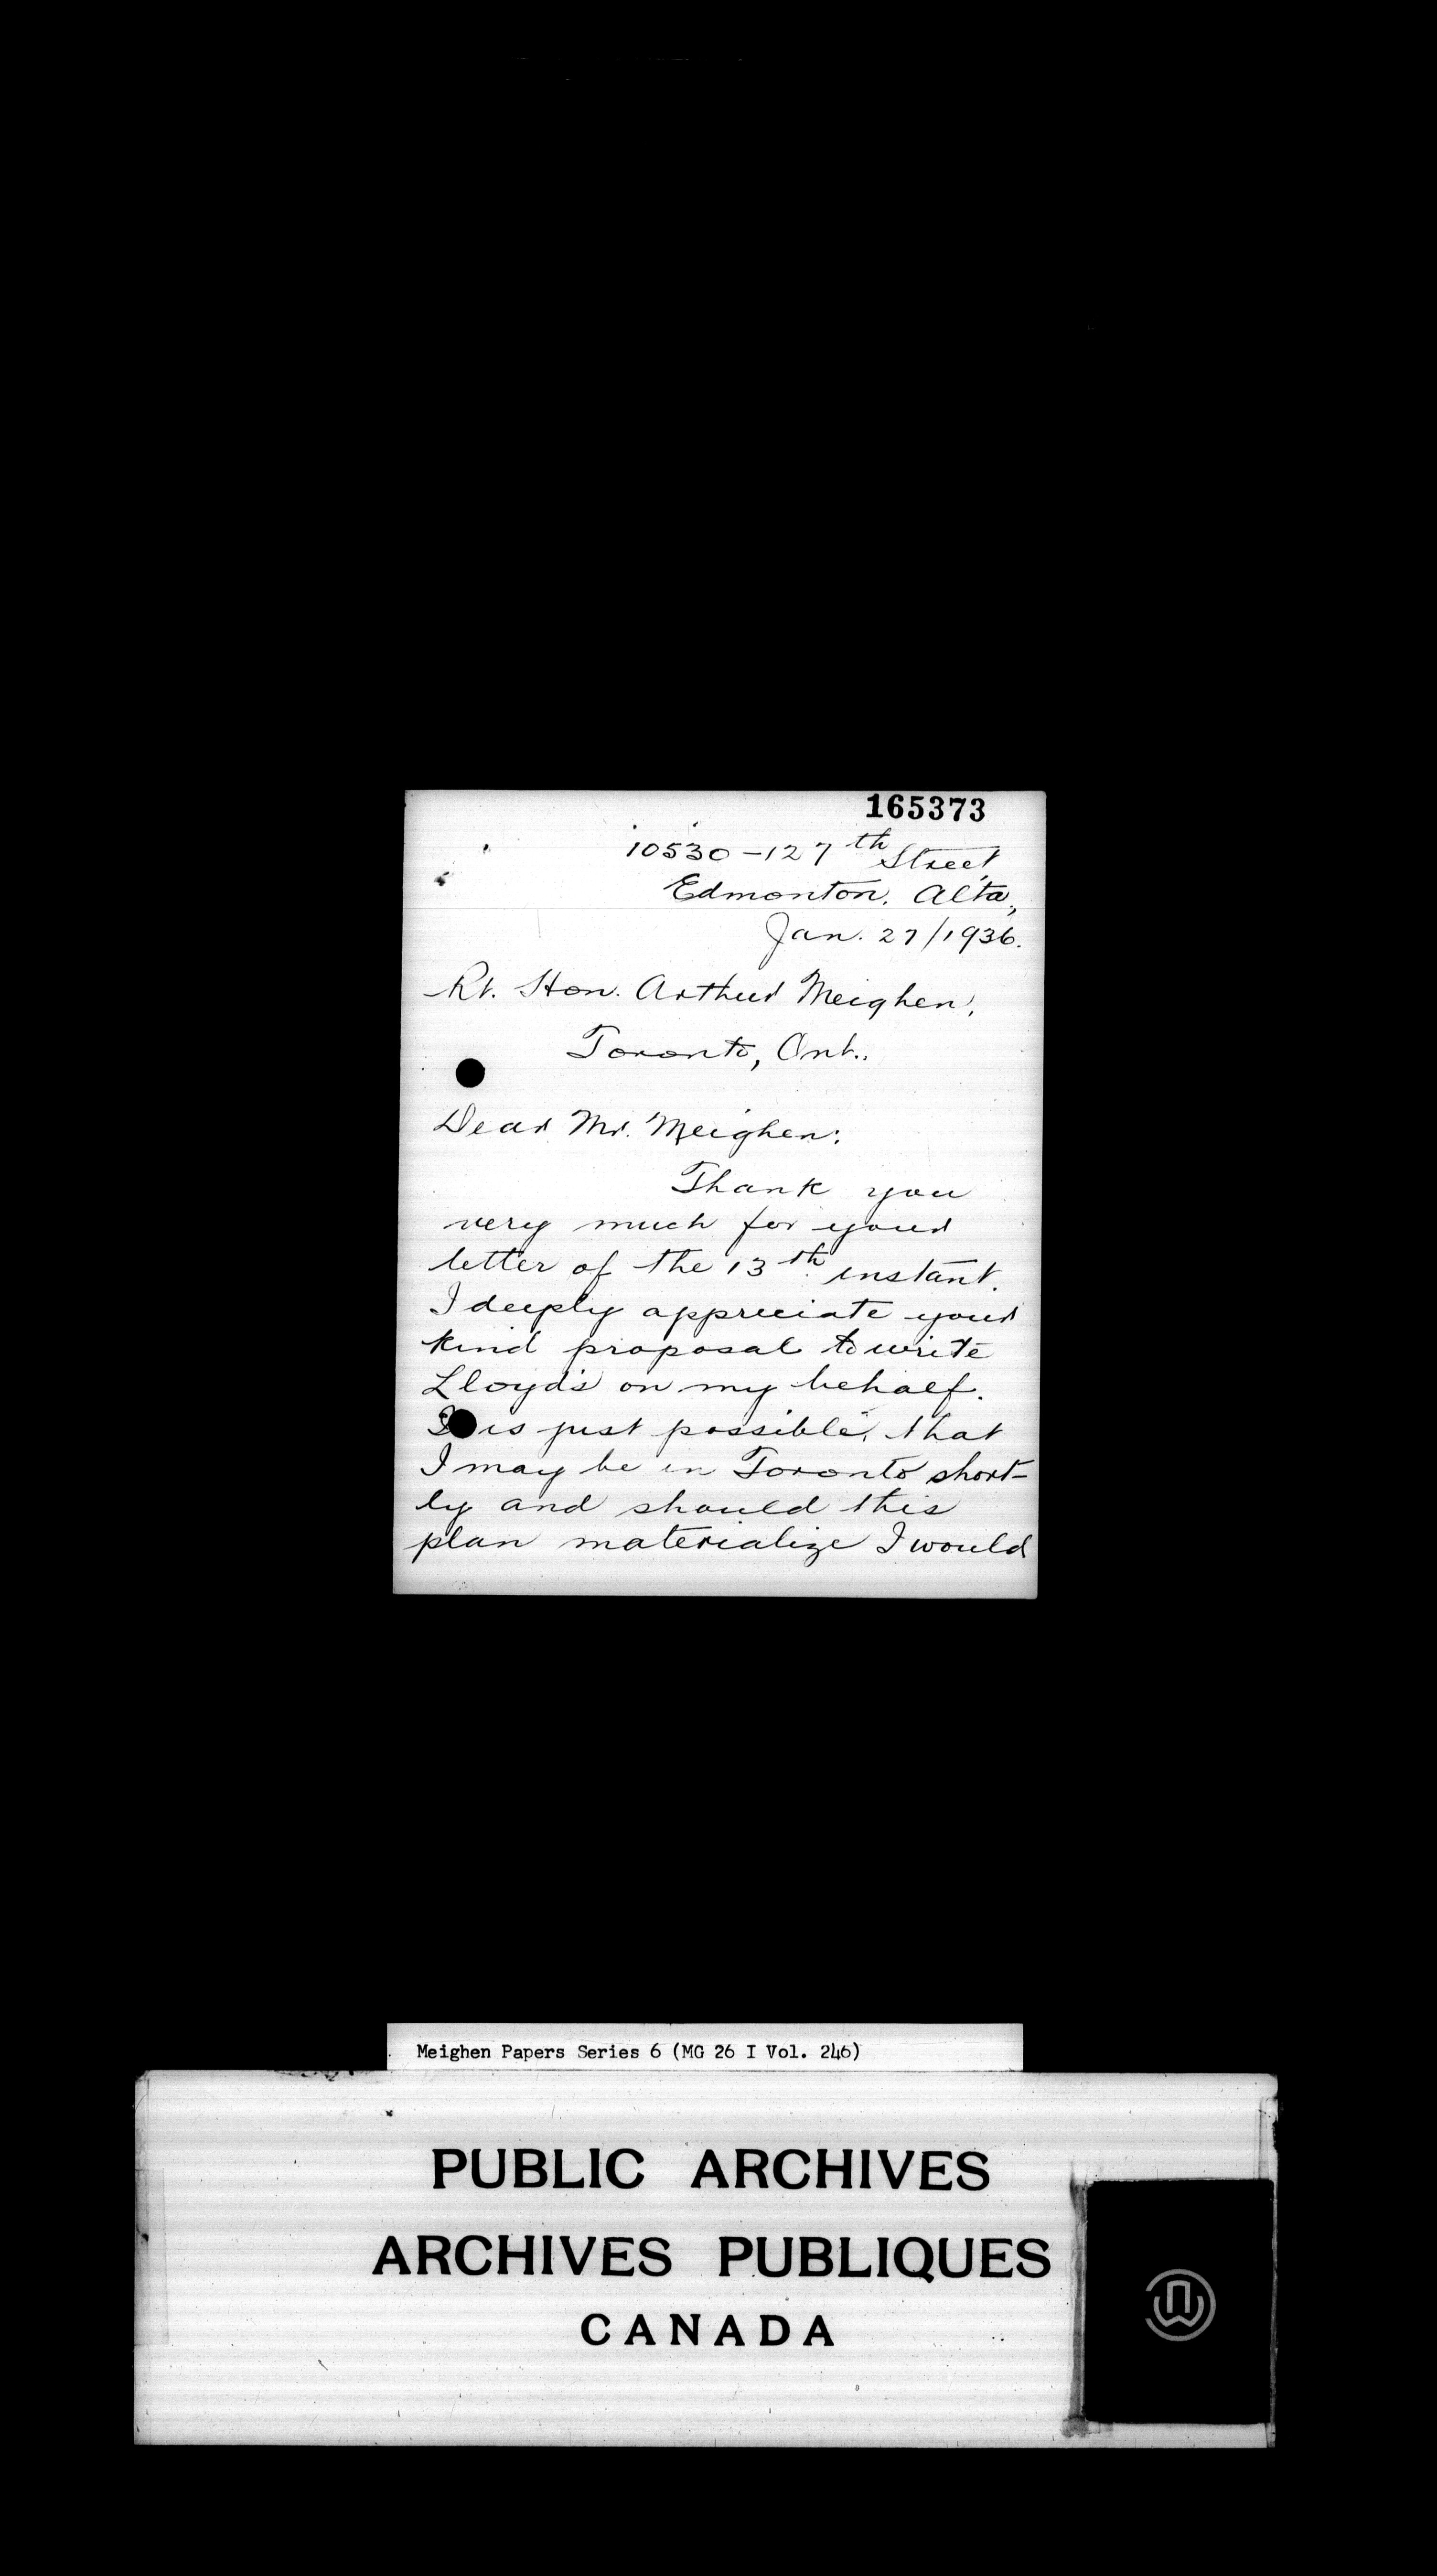 165373
10530-127th Street,
Edmonton, Alta.,
Jan. 27/1936.
Rt. Hon. Arthur Meighen,
Toronto, Ont..
Dear Mr. Meighen:
Thank you
very much for your
letter of the 13th instant.
I deeply appreciate your
kind proposal to write
Lloyd's on my behalf.
I is just possible, that
I may be in Toronto short-
ly and should this
plan materialize I would
Meighen Papers Series 6 (MG 26 I Vol. 246)
PUBLIC ARCHIVES
ARCHIVES PUBLIQUES
CANADA